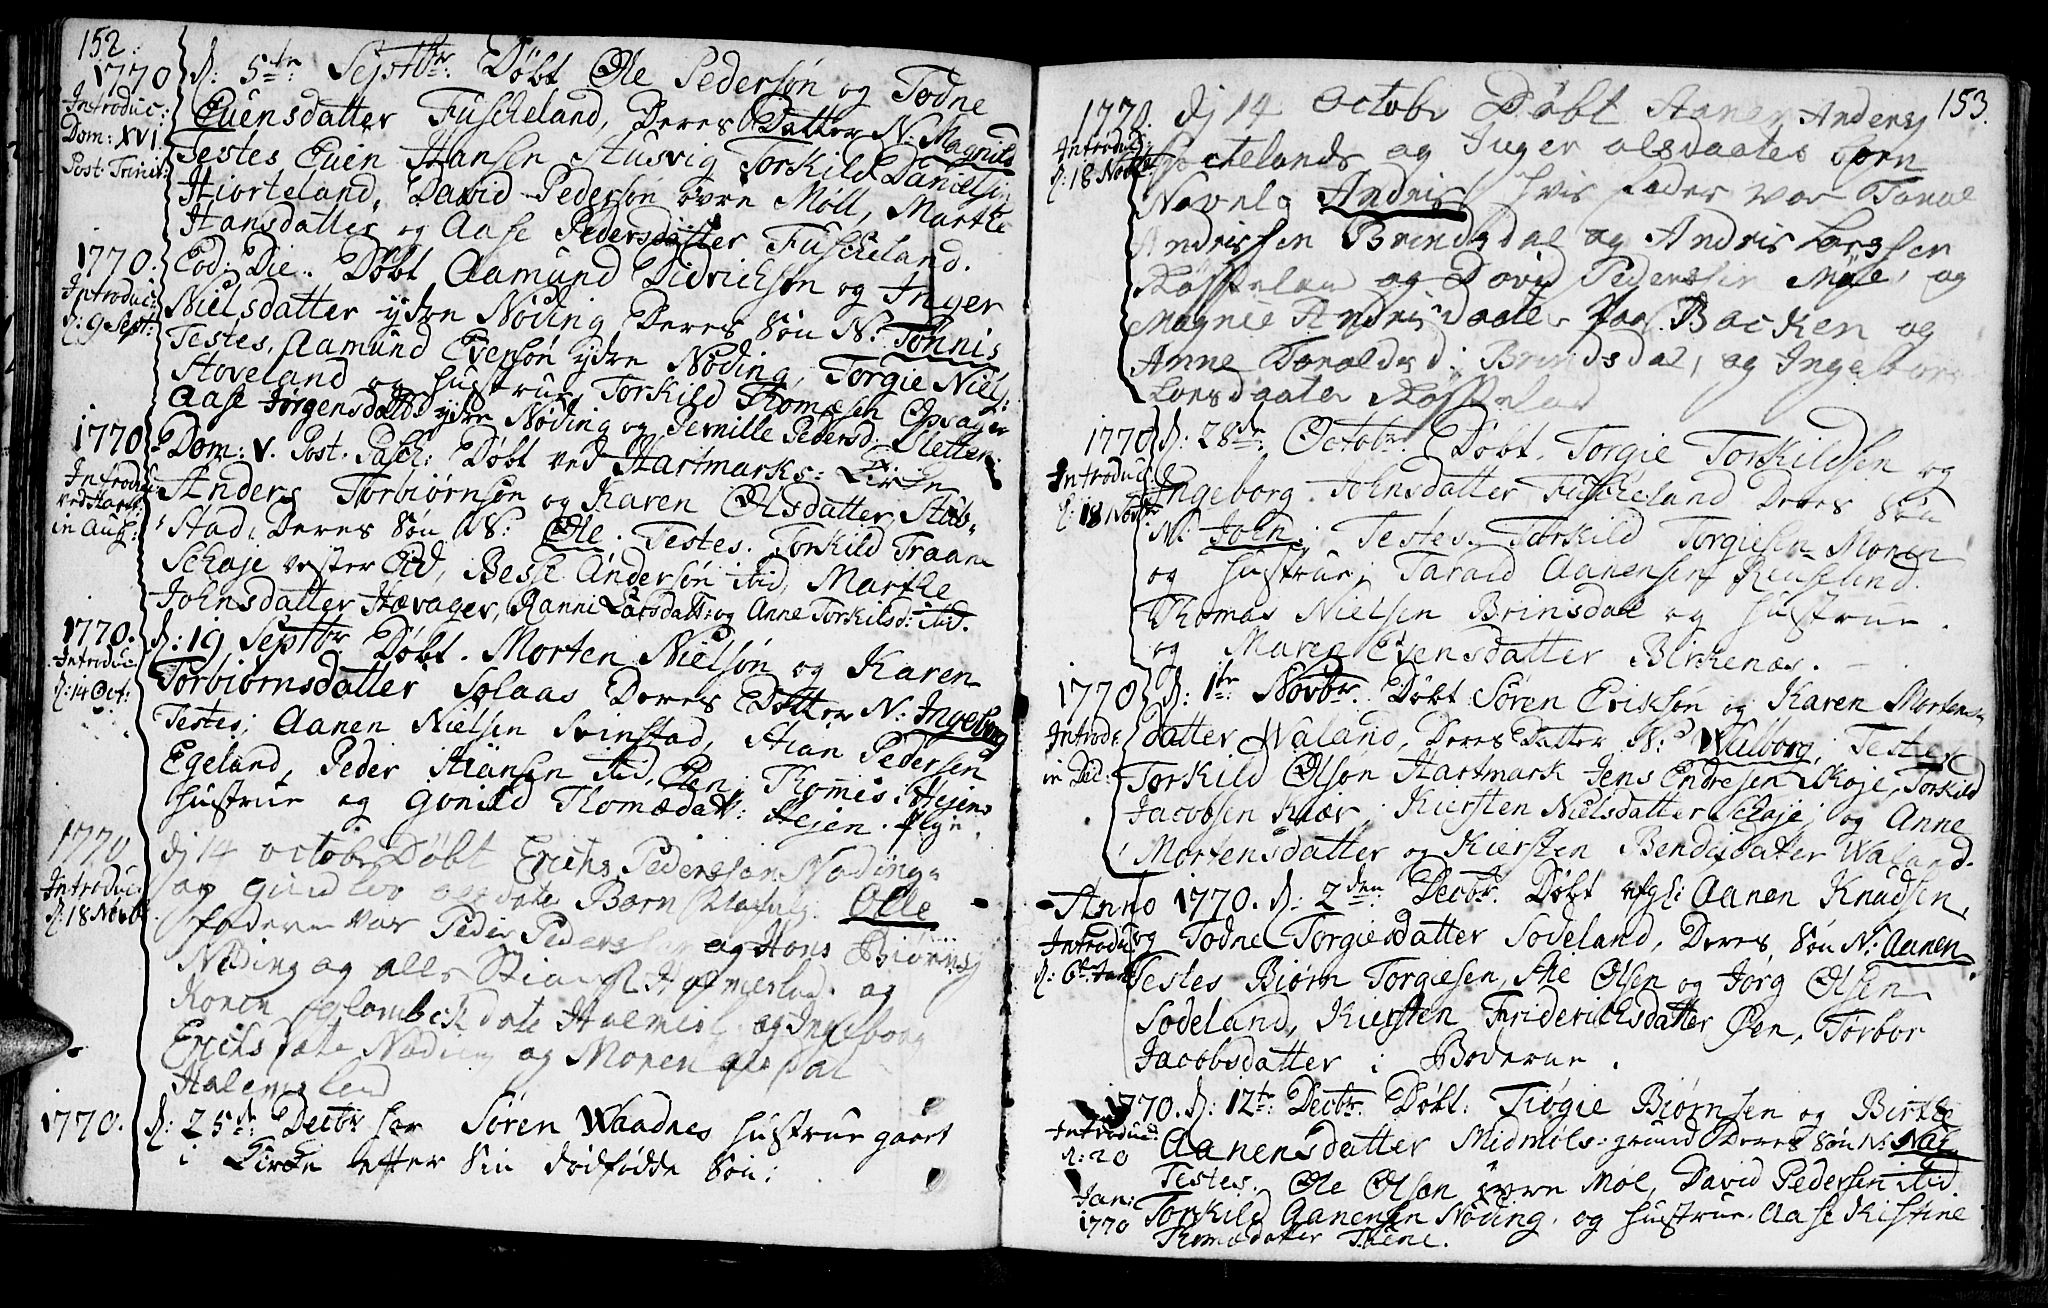 152.
1770
Introduc:
Dom: XVI.
Post. Trinit:
d: 5te Septbr. Døbt Ole Pedersøn og Todne
Evensdatter Fuscheland, Deres Datter N: Magnild
Testes Even Hansen Stusvig Torkild Danielsen
Hiorteland, David Pedersøn øvre Møll, Marthe
Hansdatter og Aase Pedersdatter Fuscheland.
1770.
Introduc:
d: 9 Sept:
Eod: Die.. Døbt Aamund Didrichsøn og Inger
Nielsdatter ydre Nøding Deres Søn N: Tønnis
Testes, Aamund Evensøn ydre Nøding, Torgie Niels:
Stoveland og hustrue, Torkild Thomæsen Opsager
Aase Jørgensdatt: ydre Nøding og Pernille Pedersd: Sletten:
1770
Introduc:
ved Hartm:
in Aug:
Dom: V. Post. Pasch: Døbt ved Hartmarks: Kirke
Anders Torbiørnsøn og Karen Olsdatter, Stub-
Stad, Deres Søn N: Ole. Testes. Torkild Traane
Schaje vester Eid, Besse Andersøn ibid, Marthe
Johnsdatter Hævager, Ranni Larsdatt: og Anne Torkilsd: ibid.
1770.
Introduc:
d: 14 Oct:
d: 19 Septbr. Døbt. Morten Nielsøn og Karen
Torbiørnsdatter Solaas Deres Datter N: Ingeborg
Testes, Aanen Nielsen Svinstad, Stian Pedersen
Egeland, Peder Stiansen ibid, Elen Thomis: Hejens
hustrue og Gonild Thomædatt: Hejen.
1770
Introduc:
d: 18 Novb.
dj 14 octobr Døbt Erichs Pederssøn Nøding
og Gunilev Børn Navnlg. Olle
fadere var Peder Pedersen og Hans Biørnsj
Nøding og alle Stians Halmeslad. og
Karen date Halmesl og Ingeborg
Erichsdate Nøding og Moren
Halemeslad
1770.
d: 25de Decbr har Søren Waadnes hustrue gaaet
i Kirke efter Sin dødfødde Søn:
153.
1770.
Introduc
d: 18 Novbr:
dj 14 Octobr Døbt Aanen Andersj
og Inger olsdaates børn
Navnlg Andris hvis fader var Taral
Andrissen Brindsdal og Andris Larssen
og David Pederssen Møle, og
Magnil Andrisdaater paa Backen og
Anne Taraldsd: Brindsdal, og Ingebor
Larsdaater
1770
Introduc:
d: 18 Novbr
d: 28de Octobr. Døbt. Torgie Torkildsen og
Ingeborg Johnsdatter Fuscheland Deres Søn
N: John. Testes. Torkild Torgiesen Monen
og hustrue, Tarald Aanensen Reuseland.
Thomas Nielsen Brinsdal og hustrue.
og Maren Evensdatter Birkenæs.
1770
Introd:
in Dec:
d: 1te Novbr. Døbt Søren Eriksøn og Karen Mortens
datter Waland, Deres Datter N: Walborg, Testes
Torkild Olsøn Hartmark Jens Endresen Skaje, Torkild
Jacobsen Kiær, Kiersten Nielsdatter Schaje, og Anne
Mortensdatter og Kiersten Bendixdatter Waland.
Anno 1770.
Introdu:
d: 6te Janr
d: 2den Decbr. Døbt afgl: Aanen Knudsen
og Todne Torgiesdatter Sodeland, Deres Søn N: Aanen
Testes Biørn Torgiesen, Ole Olsen og Jørg Olsen
Sodeland, Kiersten Friderichsdatter Øen, Torbor
Jacobsdatter i Boderne.
1770.
Introduc:
d: 20
Jan:
1770
d: 12te Decbr. Døbt: Tiøgie Biørnsen og Birthe
Aanensdatter Midmøls: grund Deres Søn N:
Testes. Ole Olsøn øvre Møl, David Pedersen ibid.
Torkild Aanensen Nøding. og hustrue. Aase Kistine
Thomædatter